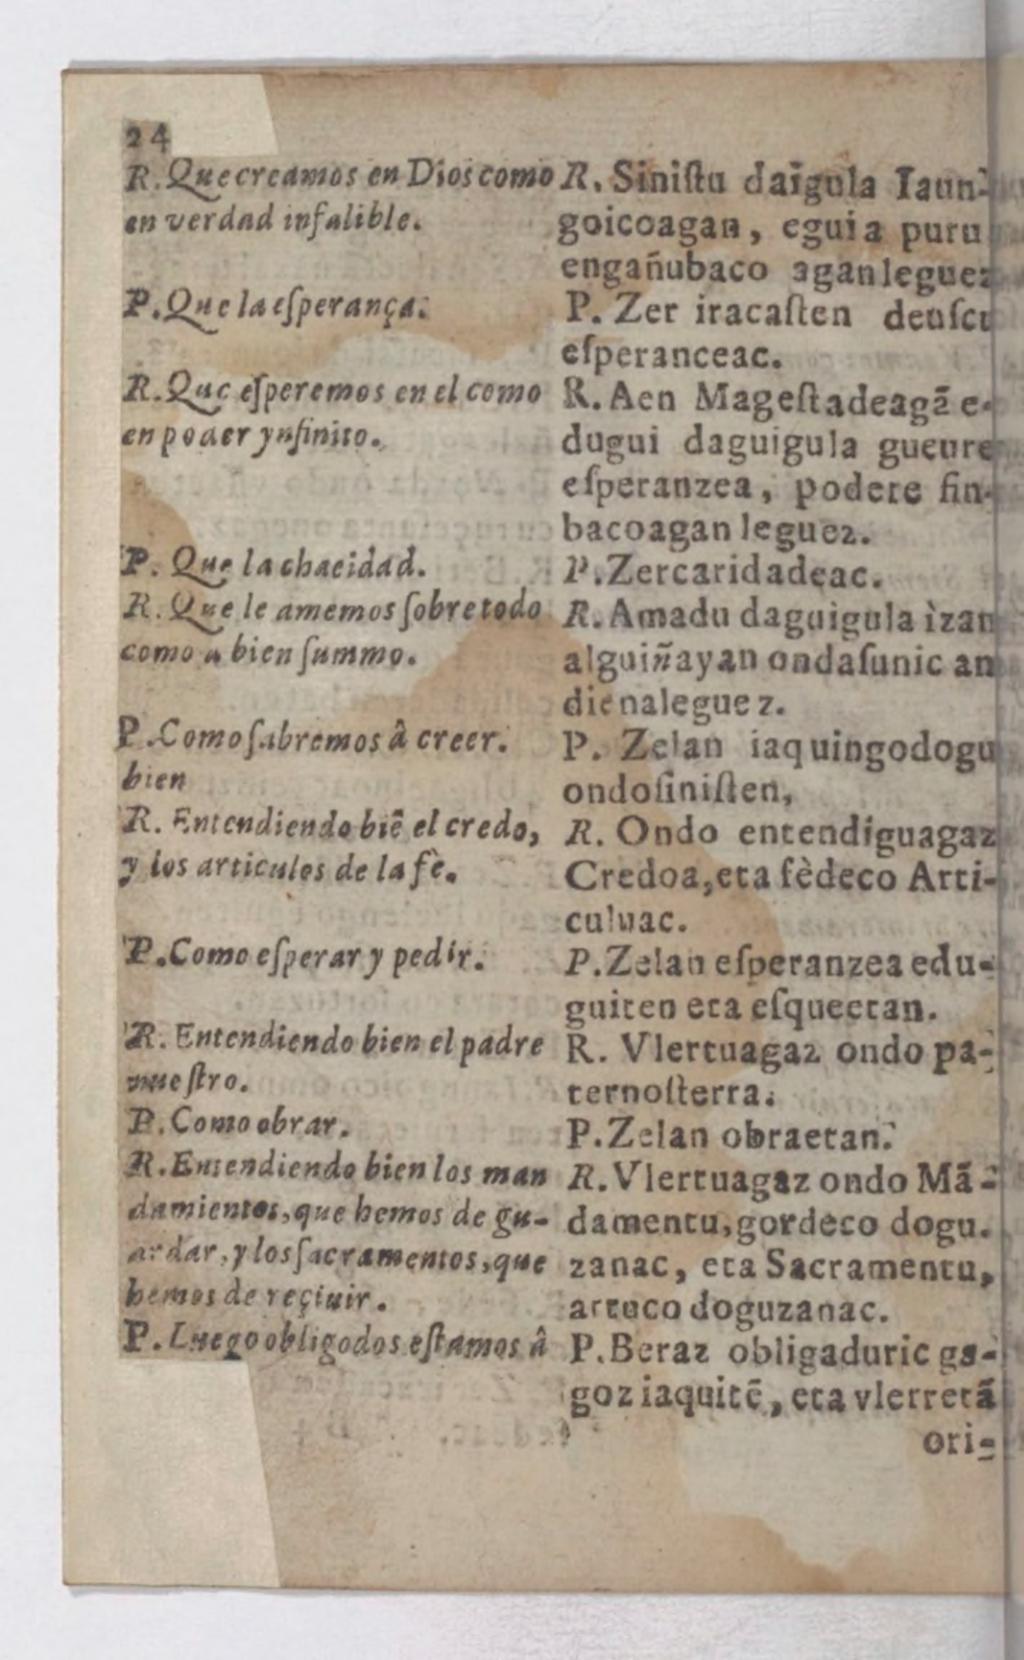 24
R. Que creamos en Dios como
en verdad infalible.
P. Que la eſperança.
R. Que eſperemos en el como
en poder ynfinito.
P. Que la chacidad.
R. Que le amemos ſobre todo
como a bien ſummo.
P. Como ſabremos â creer.
bien
R. Entendiendo biē el credo,
y los articulos de la fè.
P. Como eſperar y pedir.
R. Entendiendo bien el padre
nueſtro.
P. Como obrar.
R. Entendiendo bien los man
damientos, que hemos de gu-
ardar, y los ſacramentos, que
hemos de reçiuir.
P. Luego obligodos eſtamos â
R. Siniſtu daigula Iaun-
goicoagan, eguia puru
engañubaco agan leguez
P. Zer iracaſten deuſcu
eſperanceac.
R. Aen Mageſtadeagā e-
dugui daguigula gueure
eſperanzea, podere fin-
bacoagan leguez.
P. Zer caridadeac.
R. Amadu daguigula ìzan
alguiñayan ondaſunic an
dienaleguez.
P. Zelan iaquingodogu
ondoſiniſten,
R. Ondo entendiguagaz
Credoa, eta fèdeco Arti-
culuac.
P. Zelan eſperanzea edu-
guiten eta eſqueetan.
R. Vlertuagaz ondo pa-
ternoſterra.
P. Zelan obraetan.
R. Vlertuagaz ondo Mā-
damentu, gordeco dogu.
zanac, eta Sacramentu,
artuco doguzanac.
P. Beraz obligaduric ga-
goz iaquitē, eta vlerretā
ori-